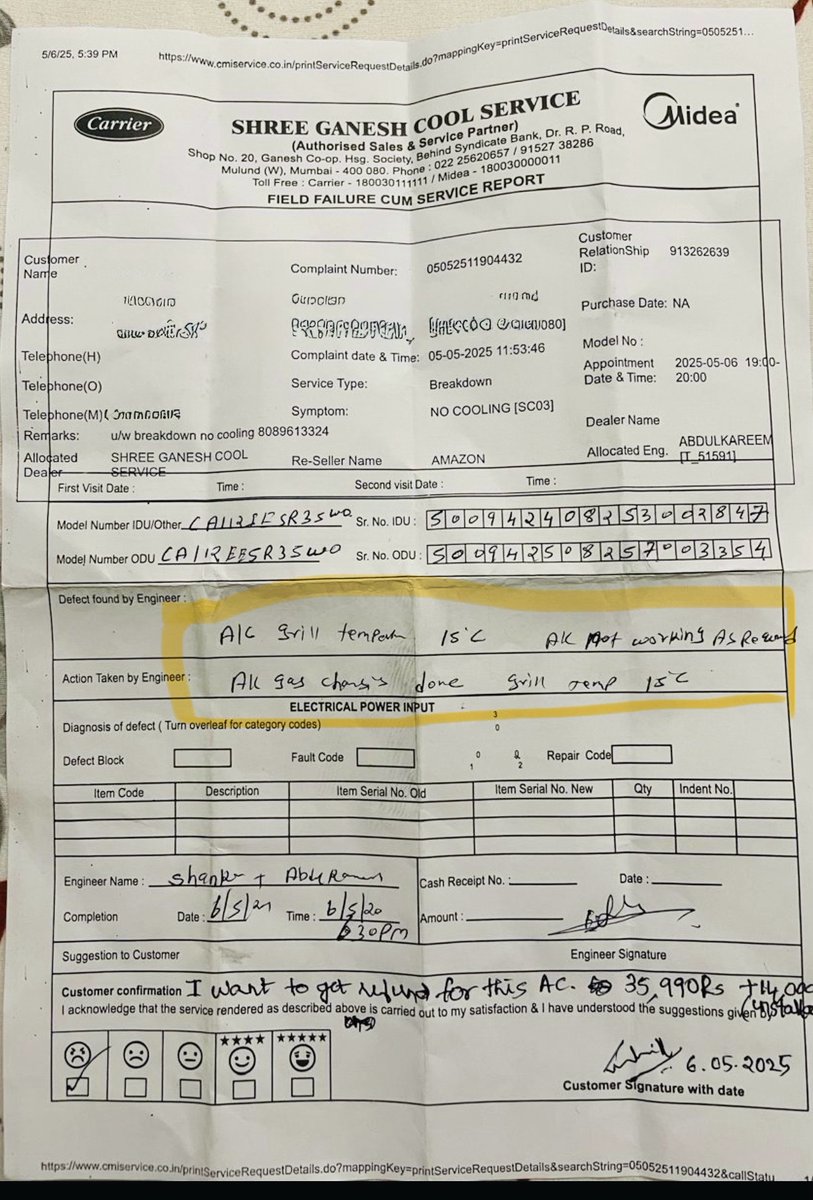 5/6/25, 5:39 PM https://www.cmiservice.co.in/printServiceRequestDetails.do?mappingKey=printServiceRequestDetails&searchString=0505251...
Carrier
Midea
SHREE GANESH COOL SERVICE
(Authorised Sales & Service Partner)
Shop No. 20, Ganesh Co-op. Hsg. Society, Behind Syndicate Bank, Dr. R. P. Road,
Mulund (W), Mumbai - 400 080. Phone : 022 25620657 / 91527 38286
Toll Free : Carrier - 180030111111 / Midea - 180030000011
FIELD FAILURE CUM SERVICE REPORT
Customer Name
Complaint Number: 05052511904432
Customer RelationShip ID: 913262639
Address:
Purchase Date: NA
Telephone(H)
Complaint date & Time: 05-05-2025 11:53:46
Model No :
Telephone(O)
Service Type: Breakdown
Appointment Date & Time: 2025-05-06 19:00-20:00
Telephone(M)
Symptom: NO COOLING [SC03]
Dealer Name
Remarks: u/w breakdown no cooling 8089613324
Allocated Dealer SHREE GANESH COOL SERVICE
Re-Seller Name AMAZON
Allocated Eng. ABDULKAREEM [T_51591]
First Visit Date : Time : Second visit Date : Time :
Model Number IDU/Other Sr. No. IDU : 500942408253002847
Model Number ODU CA112EESR35W0 Sr. No. ODU : 500942508257003354
Defect found by Engineer :
A/C grill 15°C not working As
Action Taken by Engineer : gas done grill temp 15°C
ELECTRICAL POWER INPUT
Diagnosis of defect ( Turn overleaf for category codes)
3
0
Defect Block Fault Code 0 1 2 Repair Code
Item Code Description Item Serial No. Old Item Serial No. New Qty Indent No.
Engineer Name : +
Cash Receipt No. : Date :
Completion Date : Time : 6/5/20
30PM
Amount :
Suggestion to Customer Engineer Signature
Customer confirmation I want to get refund for this AC. 35,990Rs +14,000
I acknowledge that the service rendered as described above is carried out to my satisfaction & I have understood the suggestions given by
★★★★ ★★★★★
6.05.2025
Customer Signature with date
https://www.cmiservice.co.in/printServiceRequestDetails.do?mappingKey=printServiceRequestDetails&searchString=05052511904432&callStatu